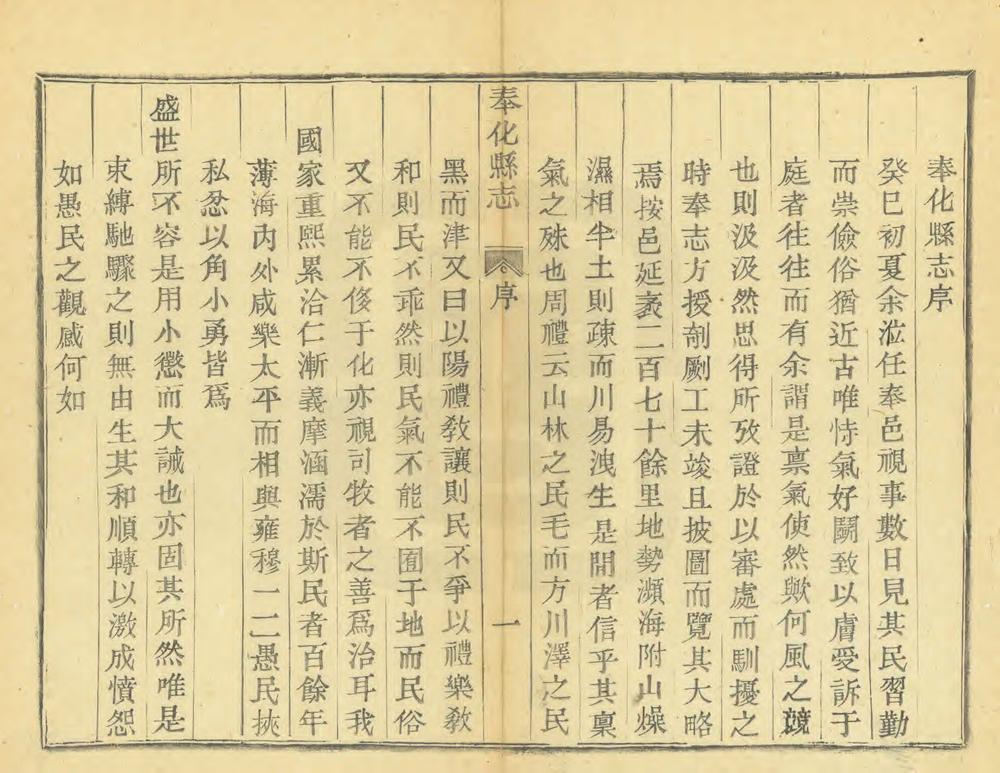 奉化縣志序
癸巳初夏余涖任奉邑視事數日見其民習勤
而崇儉俗猶近古唯恃氣好鬬致以膚愛訴于
庭者往往而有余謂是禀氣使然歟何風之競
也則汲汲然思得所攷證於以審處而馴擾之
時奉志方授剞劂工未竣且披圖而覽其大略
焉按邑延袤二百七十餘里地勢瀕海附山燥
濕相半土則疎而川易洩生是間者信乎其禀
氣之殊也周禮云山林之民毛而方川澤之民
奉化縣志 序 一
黑而津又曰以陽禮敎讓則民不爭以禮樂敎
和則民不乖然則民氣不能不囿于地而民俗
又不能不俊于化亦視司牧者之善爲治耳我
國家重熙累洽仁漸義摩涵濡於斯民者百餘年
薄海內外咸樂太平而相與雍穆一二愚民挾
私忿以角小勇皆爲
盛世所不容是用小懲而大誡也亦固其所然唯是
束縛馳驟之則無由生其和順轉以激成憤怨
如愚民之觀感何如